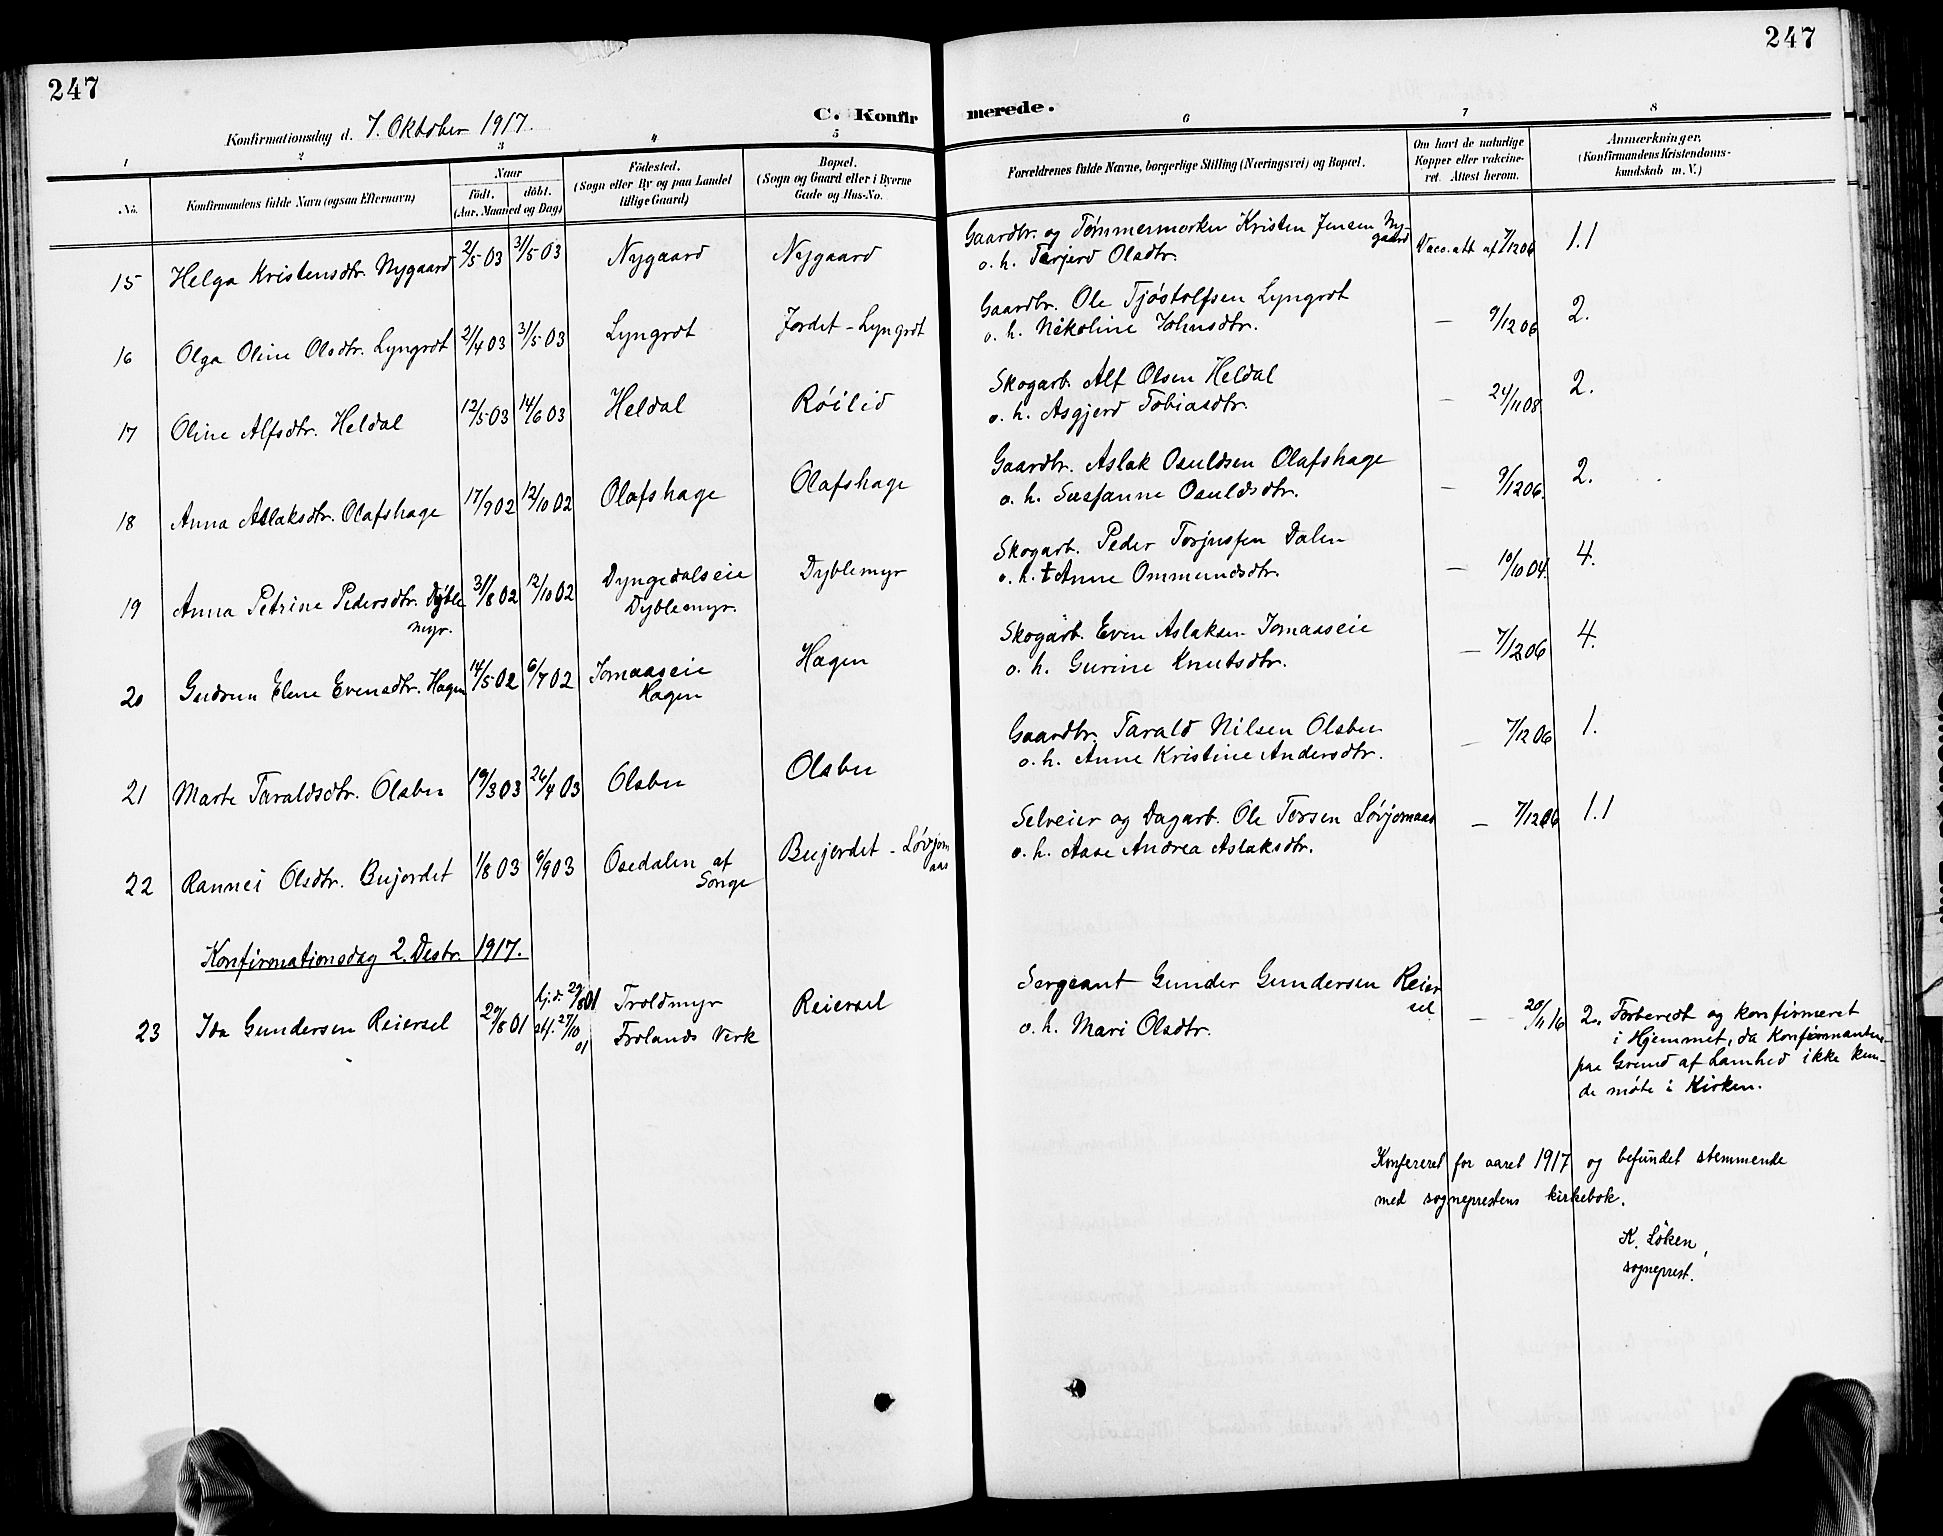 247
247
C. Konfirmerede.
Konfirmationsdag d. 7. Oktober 1917.
1 2 3 4 5 6 7 8
No. Konfirmandens fulde Navn (ogsaa Efternavn) Naar født. døbt. (Aar, Maaned og Dag) Fødested. (Sogn eller By og paa Landet tillige Gaard) Bopæl. (Sogn og Gaard eller i Byerne Gade og Hus-No. Forældrenes fulde Navne, borgerlige Stilling (Næringsvei) og Bopæl. Om havt de naturlige Kopper eller vaccineret. Attest herom. Anmærkninger, (Konfirmandens Kristendomskundskab m. V.)
15 Helga Kristensdtr. Nygaard 2/5 03 31/5 03 Nygaard Nygaard Gaardbr. og Tømmermerker Kristen Jensen Nygaard Vacc. att. af 7/12 06 1.1
o. h. Terjerd Olsdtr.
16 Olga Oline Olsdtr. Lyngrot 2/4 03 31/5 03 Lyngrot Jordet - Lyngrot Gaardbr. Ole Tjøstolfsen Lyngrot — 9/12 06 2.
o. h. Nikoline Johnsdtr.
17 Oline Alfsdtr. Heldal 12/5 03 14/6 03 Heldal Røilid Skogarb. Alf Olsen Heldal — 24/11 08 2.
o. h. Asgjerd Tobiasdtr.
18 Anna Aslaksdtr. Olafshage 17/9 02 12/10 02 Olafshage Olafshage Gaardbr. Aslak Osuldsen Olafshage — 9/12 06. 2.
o. h. Susanne Osuldsdtr.
19 Anna Petrine Pedersdtr. Dyblemyr. 31/8 02 12/10 02 Dyngedalseie Dyblemyr. Dyblemyr Skogarb. Peder Terjusfen Dalen — 10/10 04. 4.
o. h. † Anne Ommundsdtr.
20 Gudrun Elene Evensdtr. Hagen 14/5 02 6/7 02 Jomaaseie Hagen Hagen Skogarb. Even Aslaksen Jomaaseie — 7/12 06 4.
o. h. Gurine Knutsdtr.
21 Marte Taraldsdtr. Olsbu 19/3 03 26/4 03 Olsbu Olsbu Gaardbr. Tarald Nilsen Olsbu — 7/12 06 1.
o. h. Anne Kristine Andersdtr.
22 Rannei Olsdtr. Bujordet 1/8 03 6/9 03 Osedalen af Songe Bujordet - Løvjomaas Selveier og Dagarb. Ole Torsen Løvjomaas — 7/12 06 1.1
o. h. Aase Andrea Aslaksdtr.
Konfirmationsdag 2. Desbr. 1917.
23 Ida Gundersen Reiersel 29/8 01 hj.d. 29/8 01 stf. 27/10 01 Troldmyr Frolands Verk Reiersel Sergeant Gunder Gundersen Reiersel — 20/11 16 2. Forberedt og konfirmeret
o. h. Mari Olsdtr.
i Hjemmet, da Konfirmanten
paa Grund af Lamhed ikke kun-
de møte i Kirken.
Konfereret for aaret 1917 og befundet stemmende
med sogneprestens kirkebok.
K. Løken,
sogneprest.